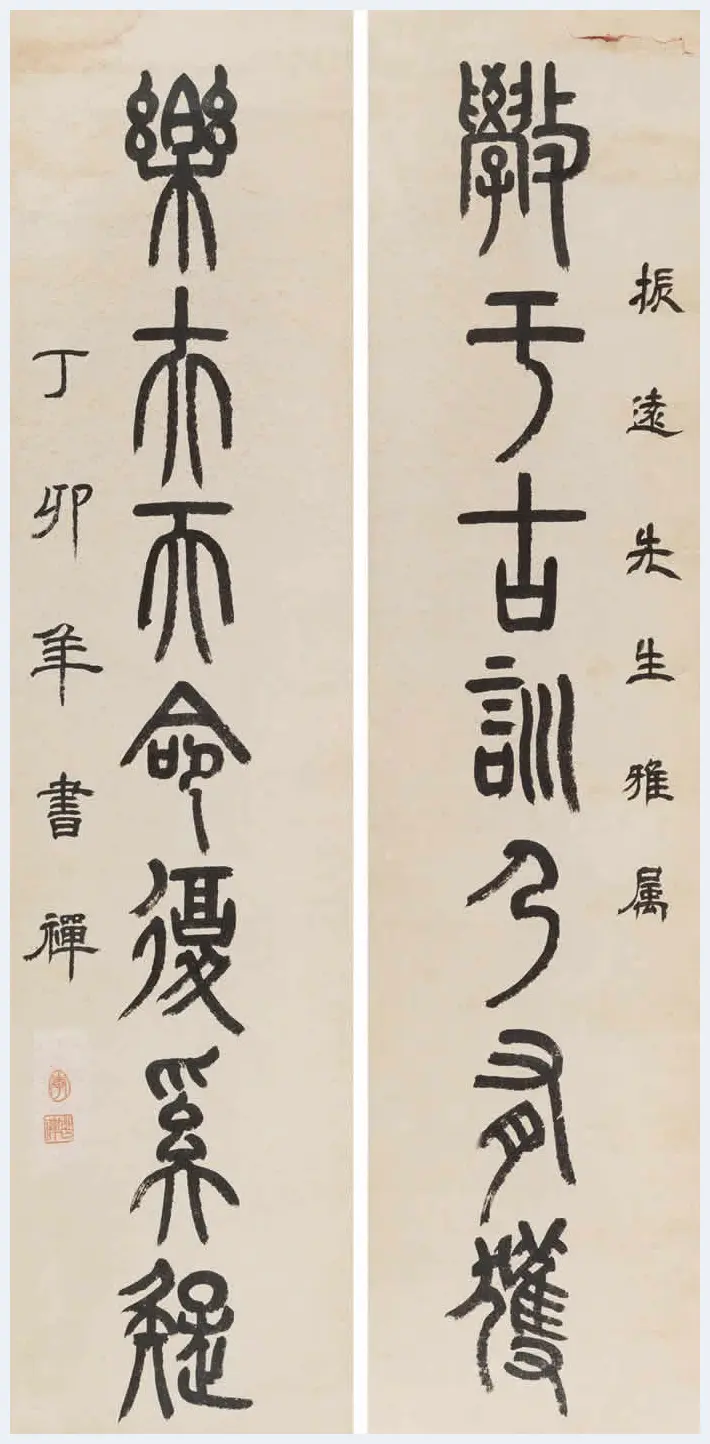 振遠先生雅属
斅于古訓乃有獲
樂夫天命復奚疑
丁卯年書禪